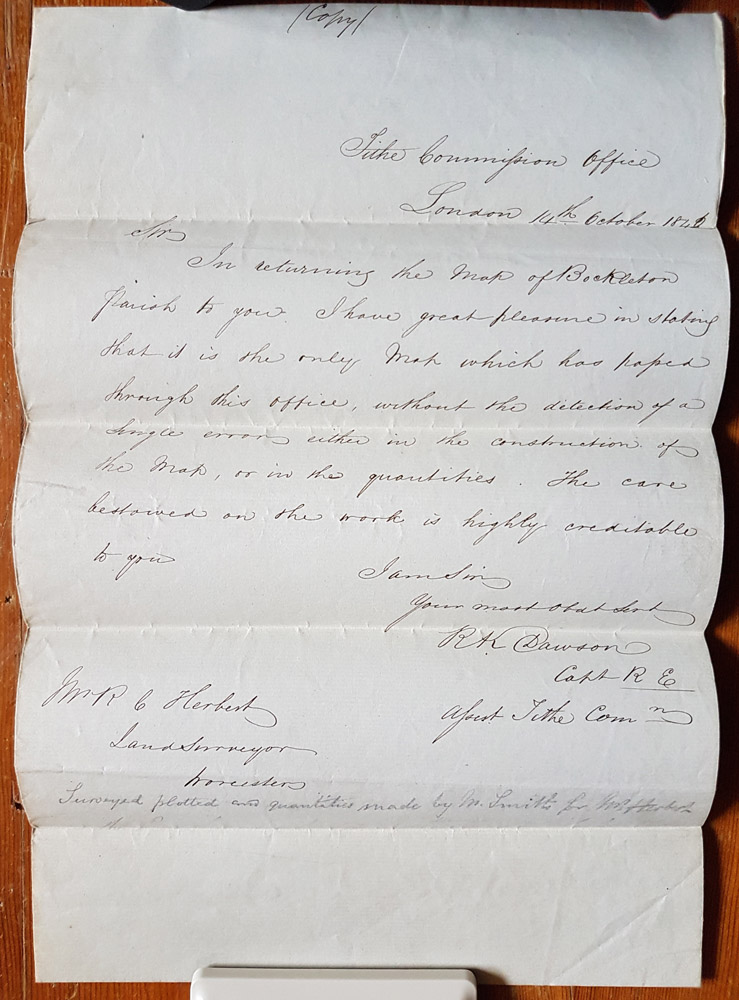 /Copy/
Tithe Commission Office
London 14th October 184
Sir
In returning the Map of Bockleton
Parish to you. I have great pleasure in stating
that it is the only Map which has passed
through this office, without the detection of a
single error either in the construction of
the Map, or in the quantities. The care
bestowed on the work is highly creditable
to you
I am Sir
Your most Obdt Servt
R K Dawson
Capt R E
Assist Tithe Comn
Mr R C Herbert
Land Surveyor
Worcester
Surveyed plotted and quantities made by W. Smith for Mr Herbert